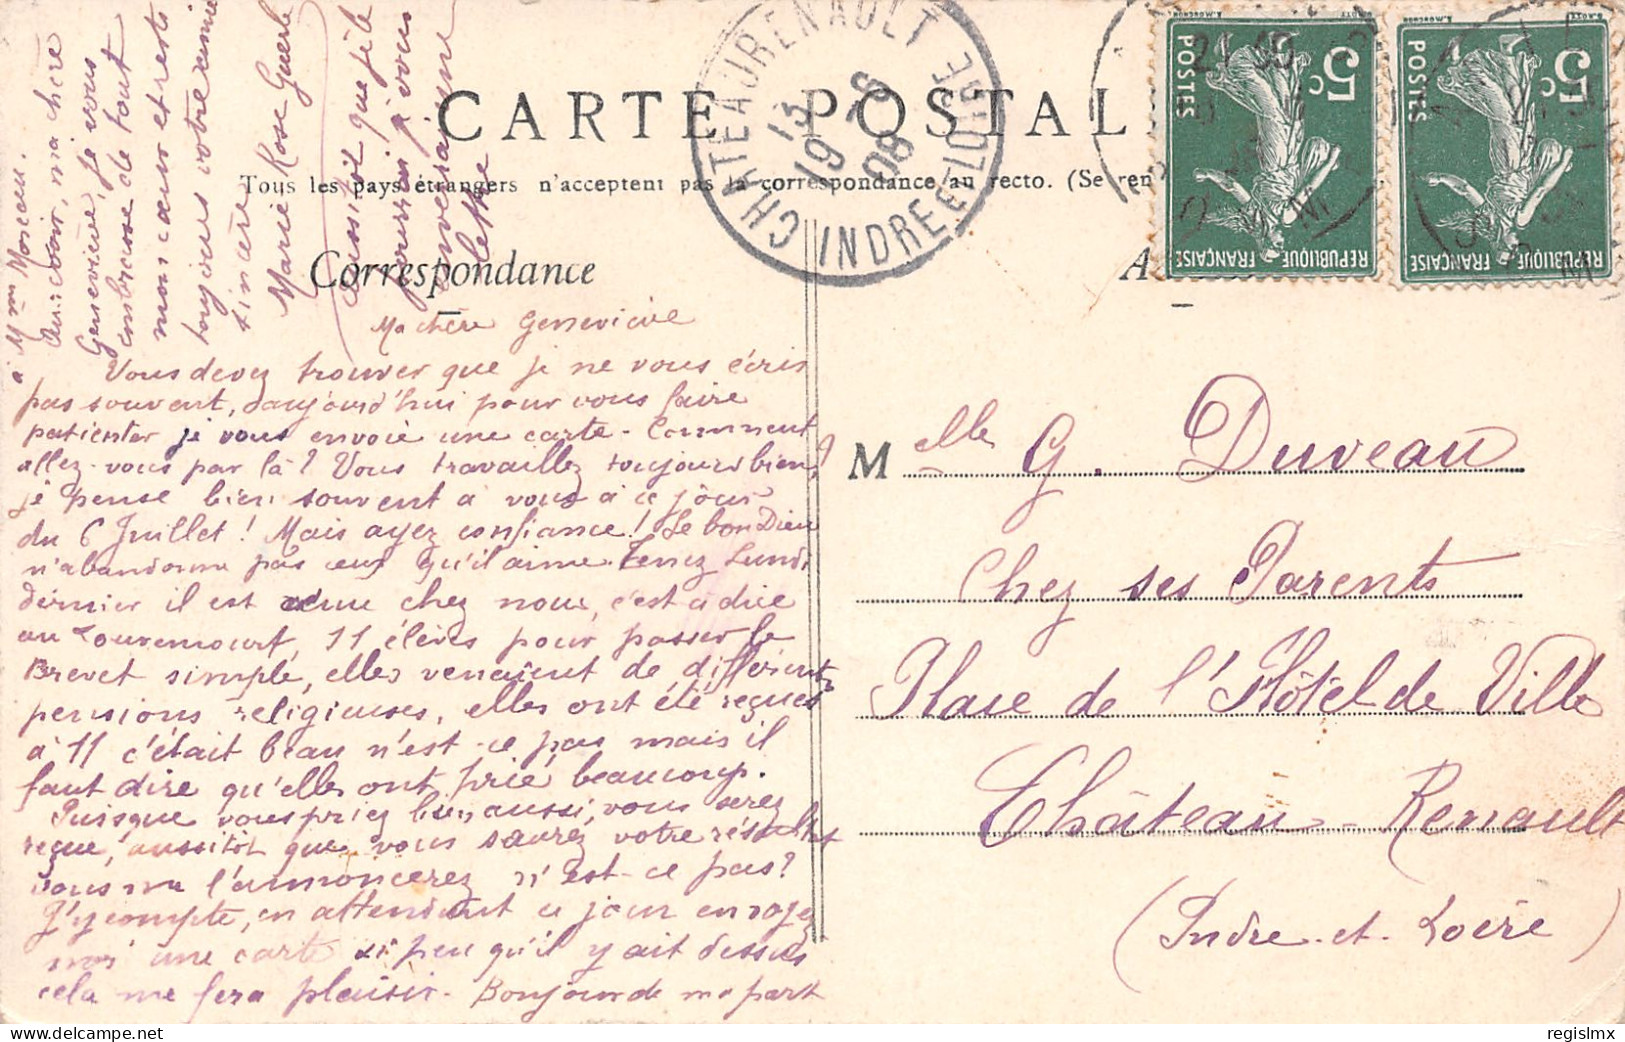 CARTE POSTALE
Tous les pays étrangers n'acceptent pas la correspondance au recto. (Se ren
Correspondance
A
Ma chère Geneviève
Vous devez trouver que je ne vous écris
pas souvent, d'aujourd'hui pour vous faire
patienter je vous envoie une carte. Comment
allez-vous par là? Vous travaillez toujours bien,
je pense bien souvent à vous à ce jour
du 6 Juillet! Mais ayez confiance! Le bon Dieu
n'abandonne pas ceux qu'il aime. Tenez Lundi
dernier il est venu chez nous, c'est à dire
au 11 élèves pour passer le
Brevet simple, elles venaient de différents
pensions religieuses, elles ont été reçues
à 11 c'était beau n'est-ce pas mais il
faut dire qu'elles ont prié beaucoup.
Puisque vous priez bien aussi, vous serez
reçue, aussitôt que vous saurez votre résultat
vous me l'annoncerez n'est-ce pas?
J'y compte, en attendant ce jour envoyez
moi une carte si peu qu'il y ait dessus
cela me fera plaisir. Bonjour de ma part
à Mme Moreau.
Au revoir, ma chère
Geneviève, je vous
embrasse de tout
mon cœur et reste
toujours votre amie
sincère
Marie Rose Guerle
aussitôt que je le
pourrai j'vous
enverai une
lettre
Melle G. Duveau
Chez ses Parents
Place de l'Hôtel de Ville
Château-Renault
(Indre-et-Loire)
CHATEAURENAULT
INDRE ET LOIRE
13
19 -6
08
5c
POSTES
REPUBLIQUE FRANÇAISE
5c
POSTES
REPUBLIQUE FRANÇAISE
regislmx